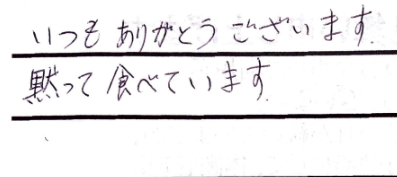 いつもありがとうございます。
黙って食べています。